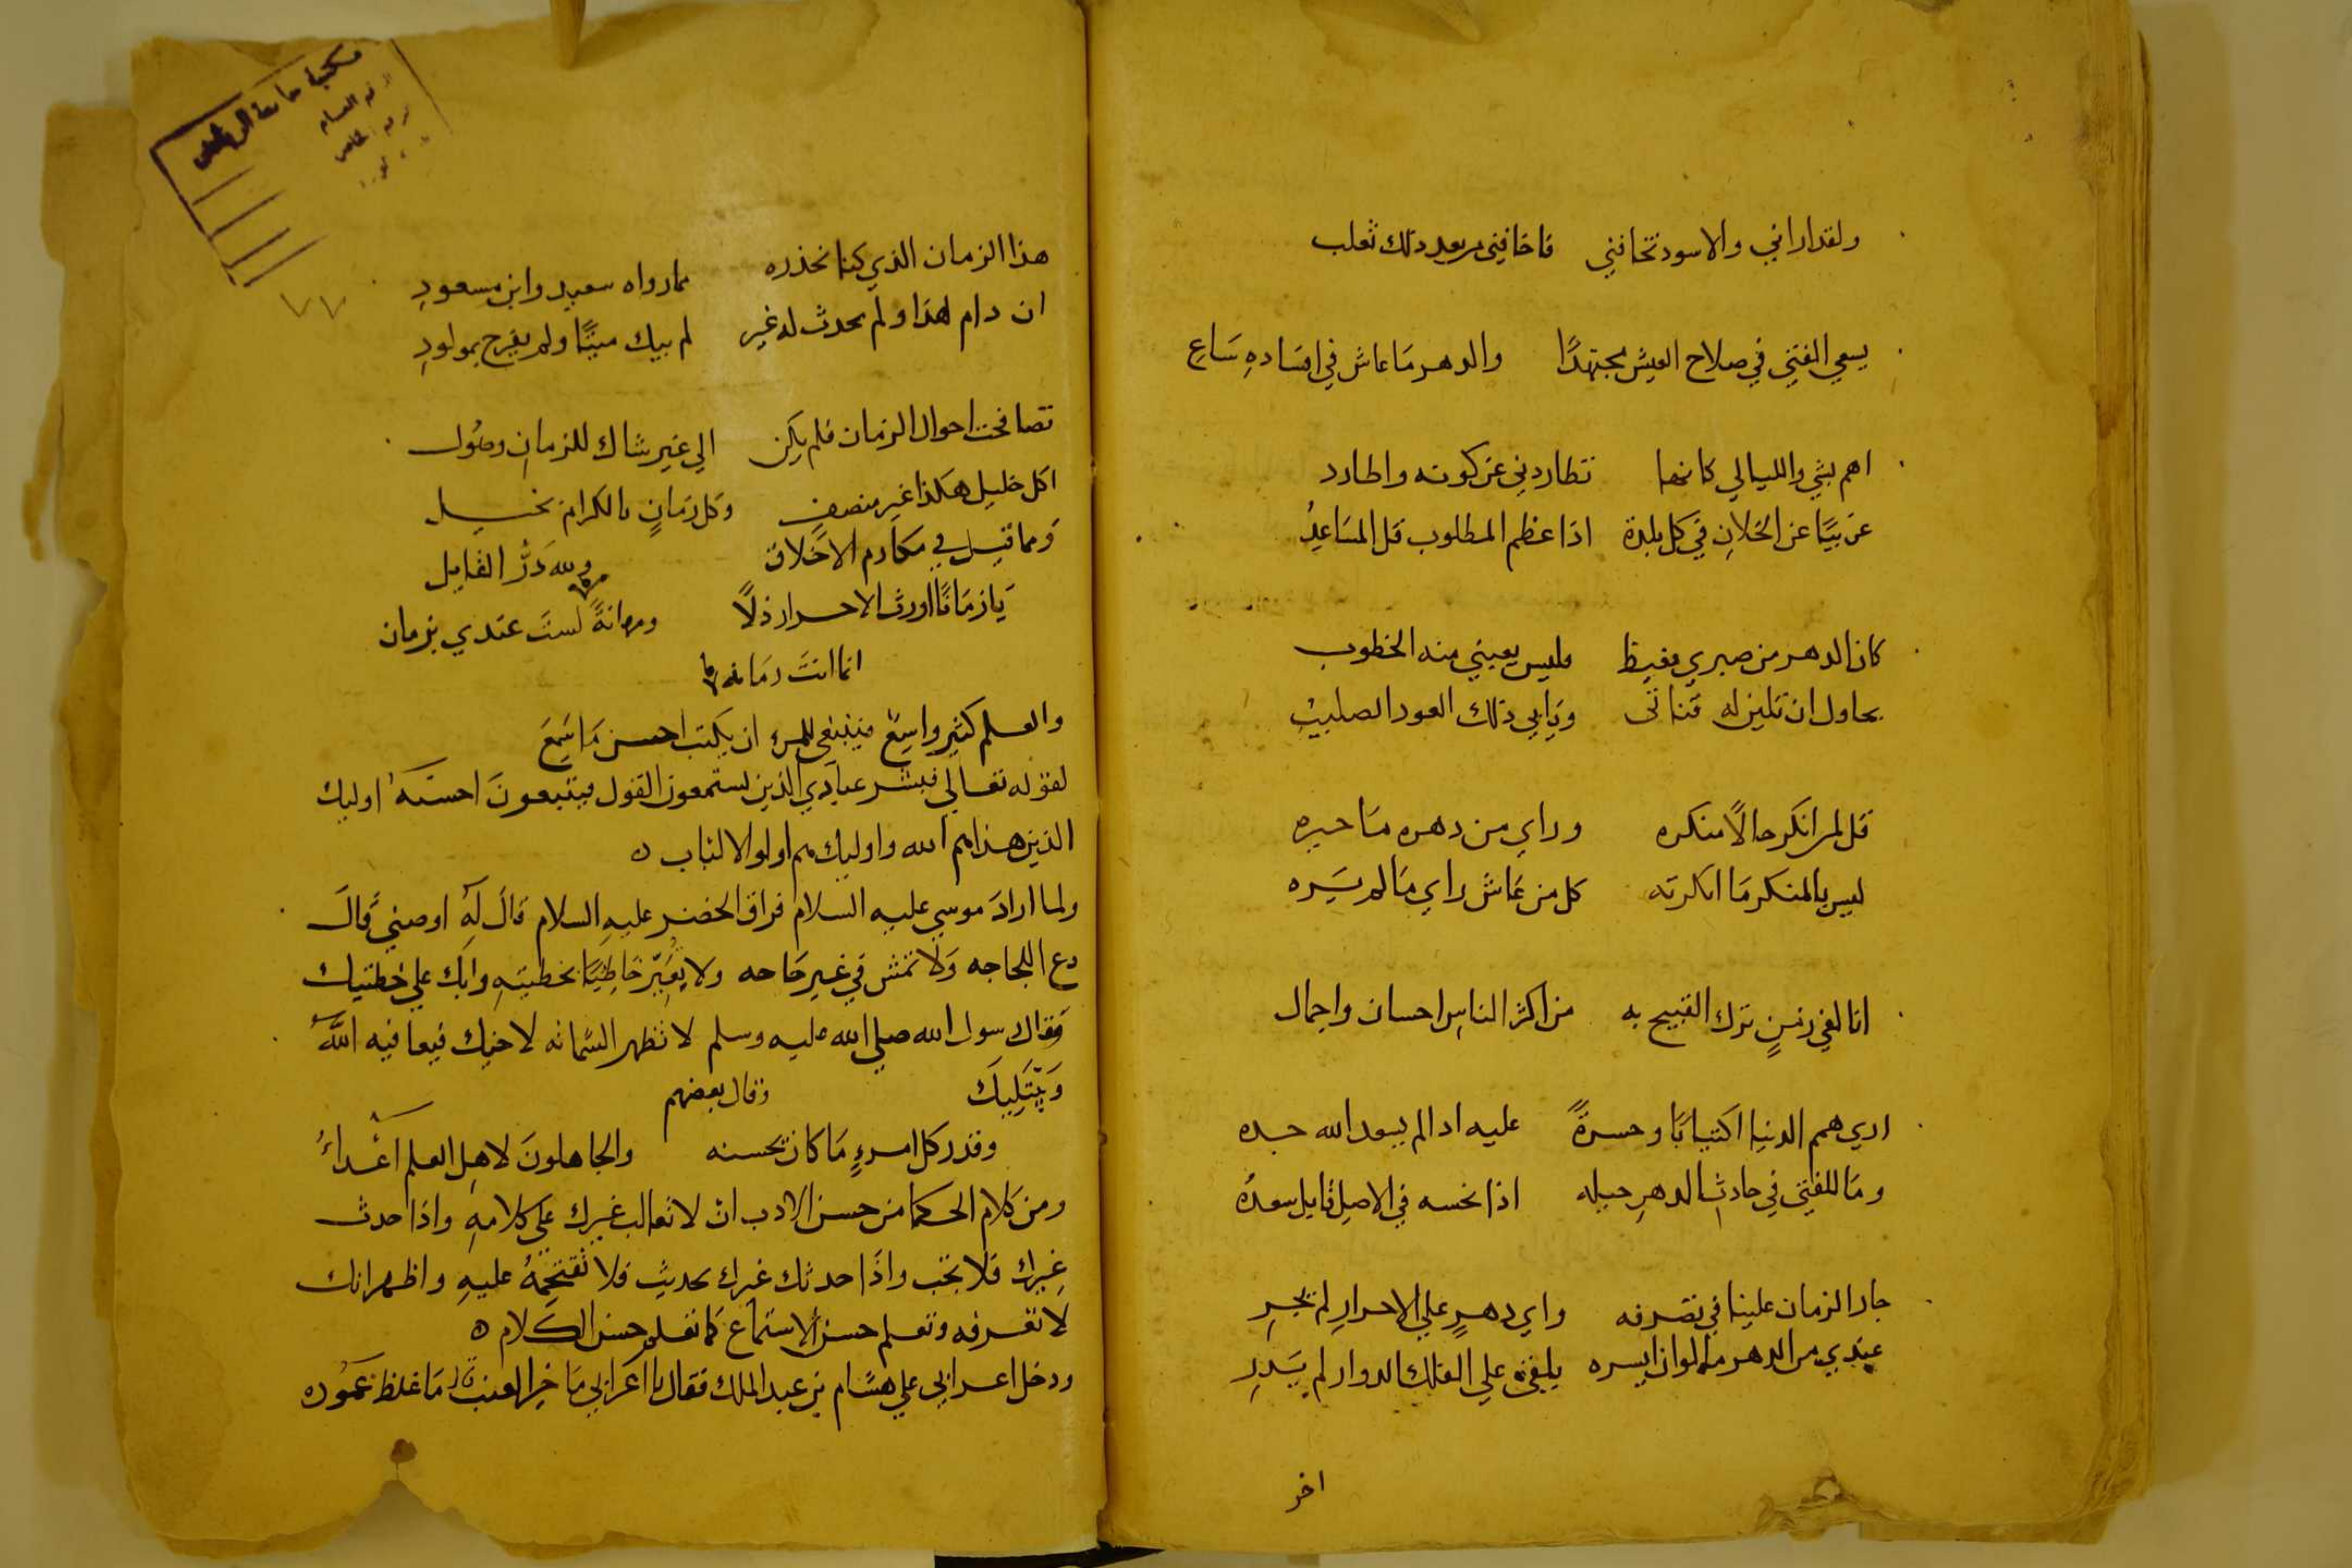 ولقد اراني والاسود تخافني فاخافني من بعد ذلك ثعلب
يسعي الفتي في صلاح العيش مجتهدًا والدهر مَا عاش في افسَادهِ سَاعِ
اهم بشي والليالي كانها تطاردني عن كونه واطارد
غريبًا عن الخلانِ في كل بلدة اذا عظم المطلوب قل المسَاعِدُ
كان الدهر من صبري مغيظ فليس يغبني منه الخطوب
يحاول ان تلين له قناتى ويَابي ذلك العود الصليبُ
قل لمن انكر حالًا منكره وراي من دهره مَا حيره
ليس بالمنكر مَا انكرته كل من عَاشَ راي مَا لم يَسَره
انا لفي زمنٍ ترك القبيح به من اكثر الناسِ احسان واجمال
اري همم الدنيا اكتيابًا وحسرةً عليه اذا لم يسعد الله جده
ومَا للفتي في حادثِ الدهرِ حيله اذا نحسه في الاصل قابل سعدُه
جار الزمان علينا في تصرفه واي دهرٍ علي الاحرارِ لم يجرِ
عندي من الدهر ما لو ان ايسره يلقي علي الفلك الدوار لم يَدرِ
اخر
هذا الزمان الذي كنا نحذره مما رواه سعيد وابن مسعودِ
ان دام هذا ولم يحدث له غير لم يبك ميتًا ولم يفرح بمولودِ
تصافحت احوال الزمان فلم يكن الي غير شاك للزمانِ وصُول
اكل خليل هكذا غير منصفٍ وكل زمَانٍ بالكرام بخيل
وَمما قيل في مكارم الاخلاق ولله دَرُّ القايل
يَا زمَانًا اورث الاحرار ذلًا ومهانةً لستَ عندي بزمان
انما انتَ زمَانه
والعلم كثير واسِعٌ فينبغي للمرء ان يكتب احسن مَا سَمِعَ
لقوله تعالي فبشر عبادي الذين يستمعون القول فيتبعونَ احسنَه اوليك
الذين هذاهم الله واوليك هم اولوا الالباب
ولما ارادَ موسي عليه السلام فراق الخضر عليهِ السلام قالَ لهُ اوصني قالَ
دع اللجاجه وَلا تمش في غير حَاجه ولا تعَيّر خَاطِيًا بخطيته وابك علي خطيتك
وَقال رسول الله صلي الله عليه وسلم لا تظهر الشماته لاخيك فيعافيه اللهُ
وَيَبْتَلِيكَ وقال بعضهم
وقدر كل امرءٍ مَا كان يحسنه والجاهلونَ لاهل العلم أعْداءُ
ومن كلام الحكما من حسن الادب ان لا تغالب غيرك علي كلامهِ واذا حدث
غيرك فلا تجب واذَا حدثك غيرك بحديث فلا تقتحِمْهُ عليهِ واظهر انك
لا تعرفه وتعلم حسن الاستماع كما تعلم حسن الكلام
ودخل اعرابي علي هشام بن عبد الملك فقال يا اعرابي مَا خير العنب قال مَا غلظ عمُوده